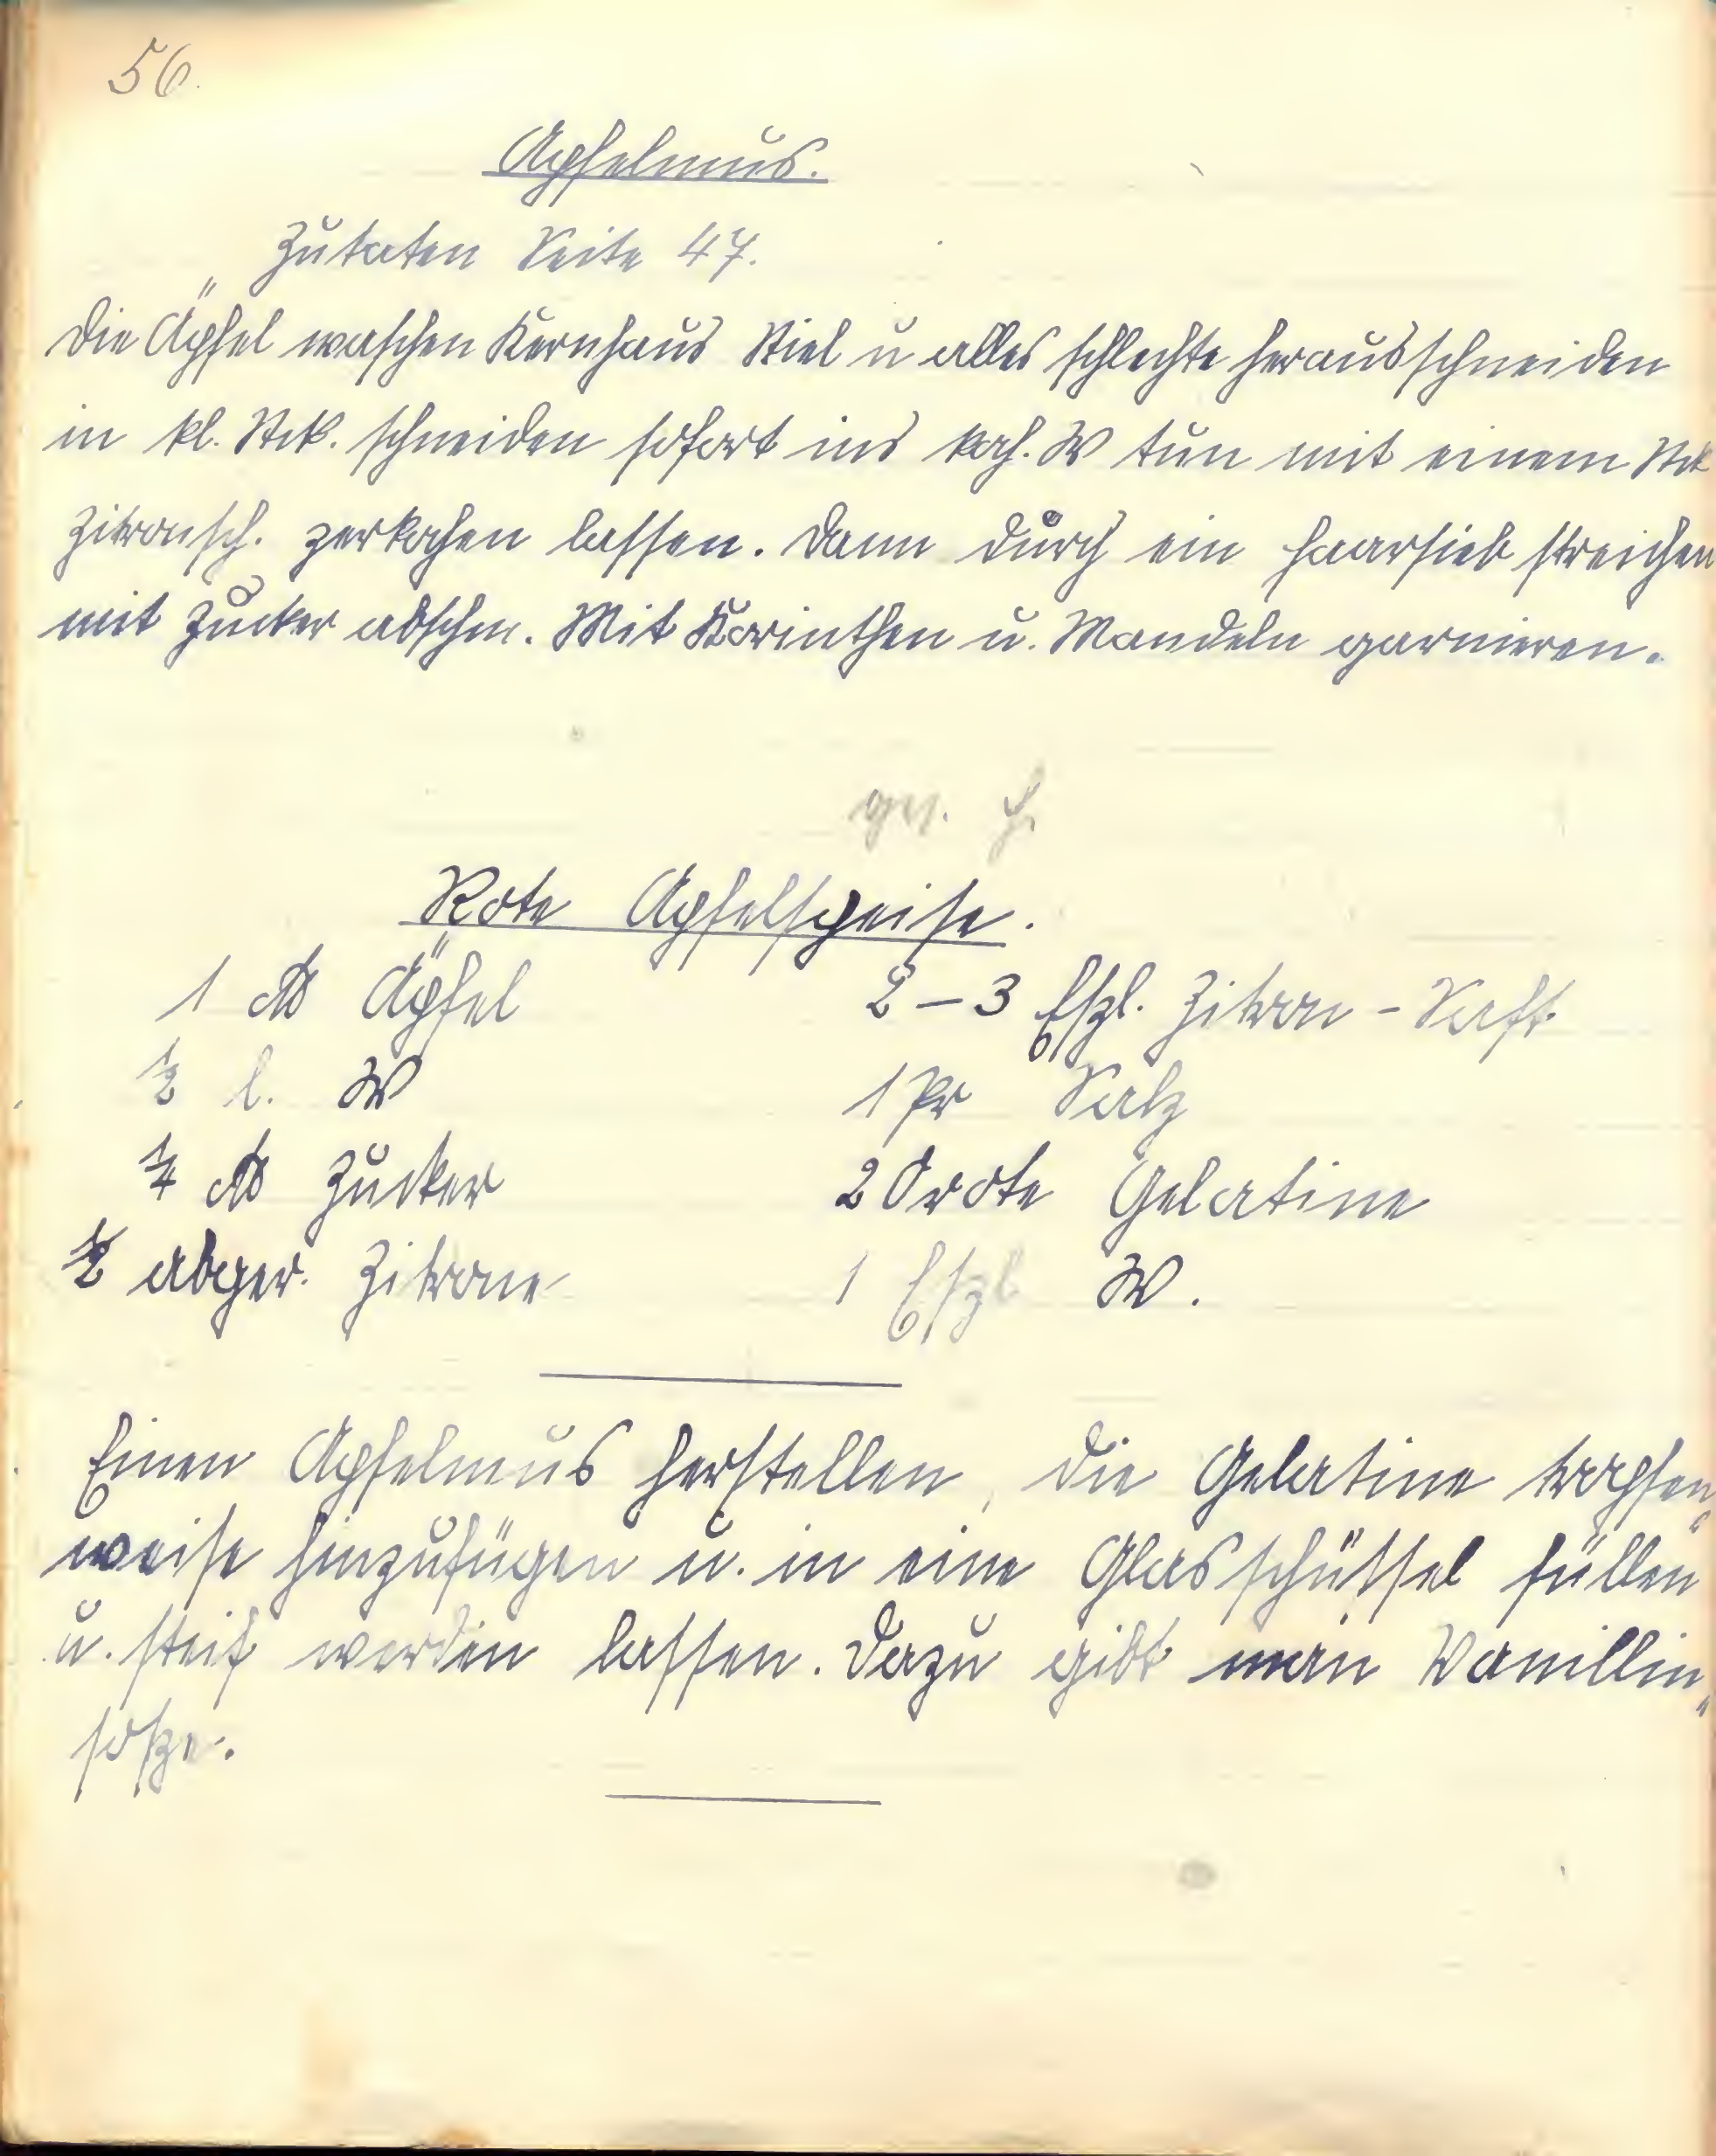 56.
Apfelmus.
Zutaten Seite 47.
Die Äpfel waschen Kernhaus Stiel u alles schlechte herausschneiden
in kl. Stck. schneiden sofort ins koch. W tun mit einem Stck
Zitronsch. zerkochen lassen. Dann durch ein Haarsieb streichen
mit Zucker abschm. Mit Korinthen u. Mandeln garnieren.
Rote Apfelspeise.
1 ℔ Äpfel 2 – 3 Eßl. Zitron - Saft
½ l. W 1 Pr Salz
¼ ℔ Zucker 2 rote Gelatine
½ abger. Zitrone 1 Eßl W.
Einen Apfelmus herstellen, die Gelatine tropfen„
weise hinzufügen u. in eine Glasschüssel füllen
u. steif werden lassen. Dazu gibt man Vanillin„
soße.